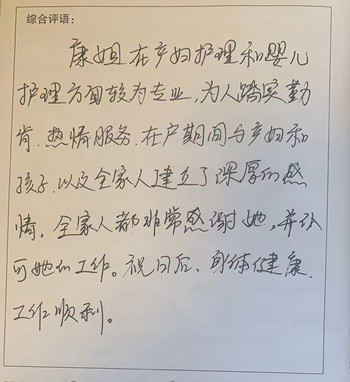 综合评语：
康姐在产妇护理和婴儿
护理方面较为专业,为人踏实勤
肯.热情服务.在户期间与产妇和
孩子.以及全家人建立了深厚的感
情，全家人都非常感谢她,并认
可她的工作。祝日后、身体健康.
工作顺利。